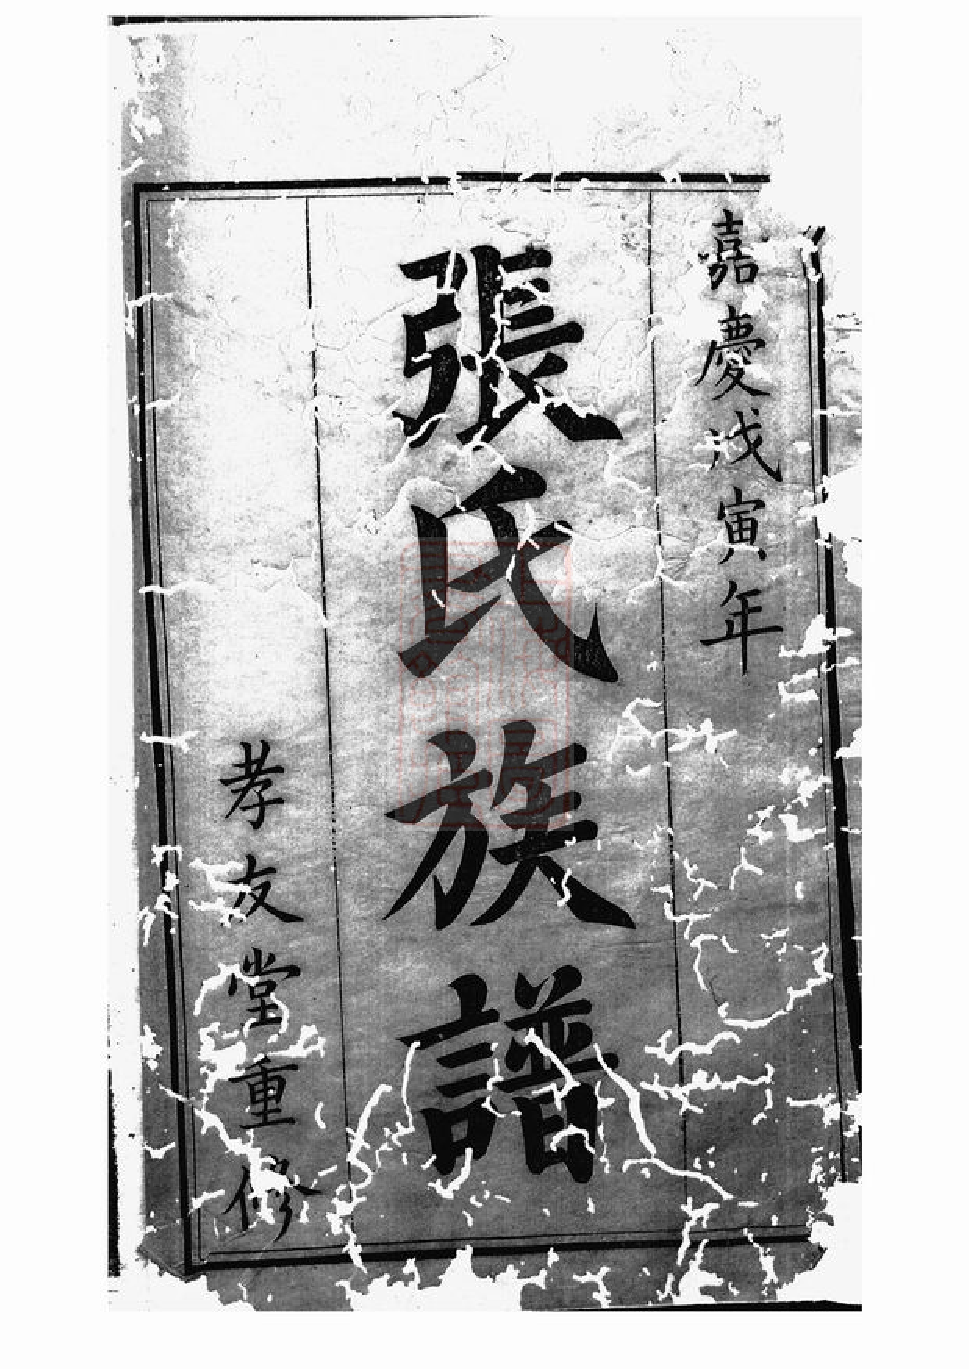 嘉慶戊寅年
張氏族譜
孝友堂重修